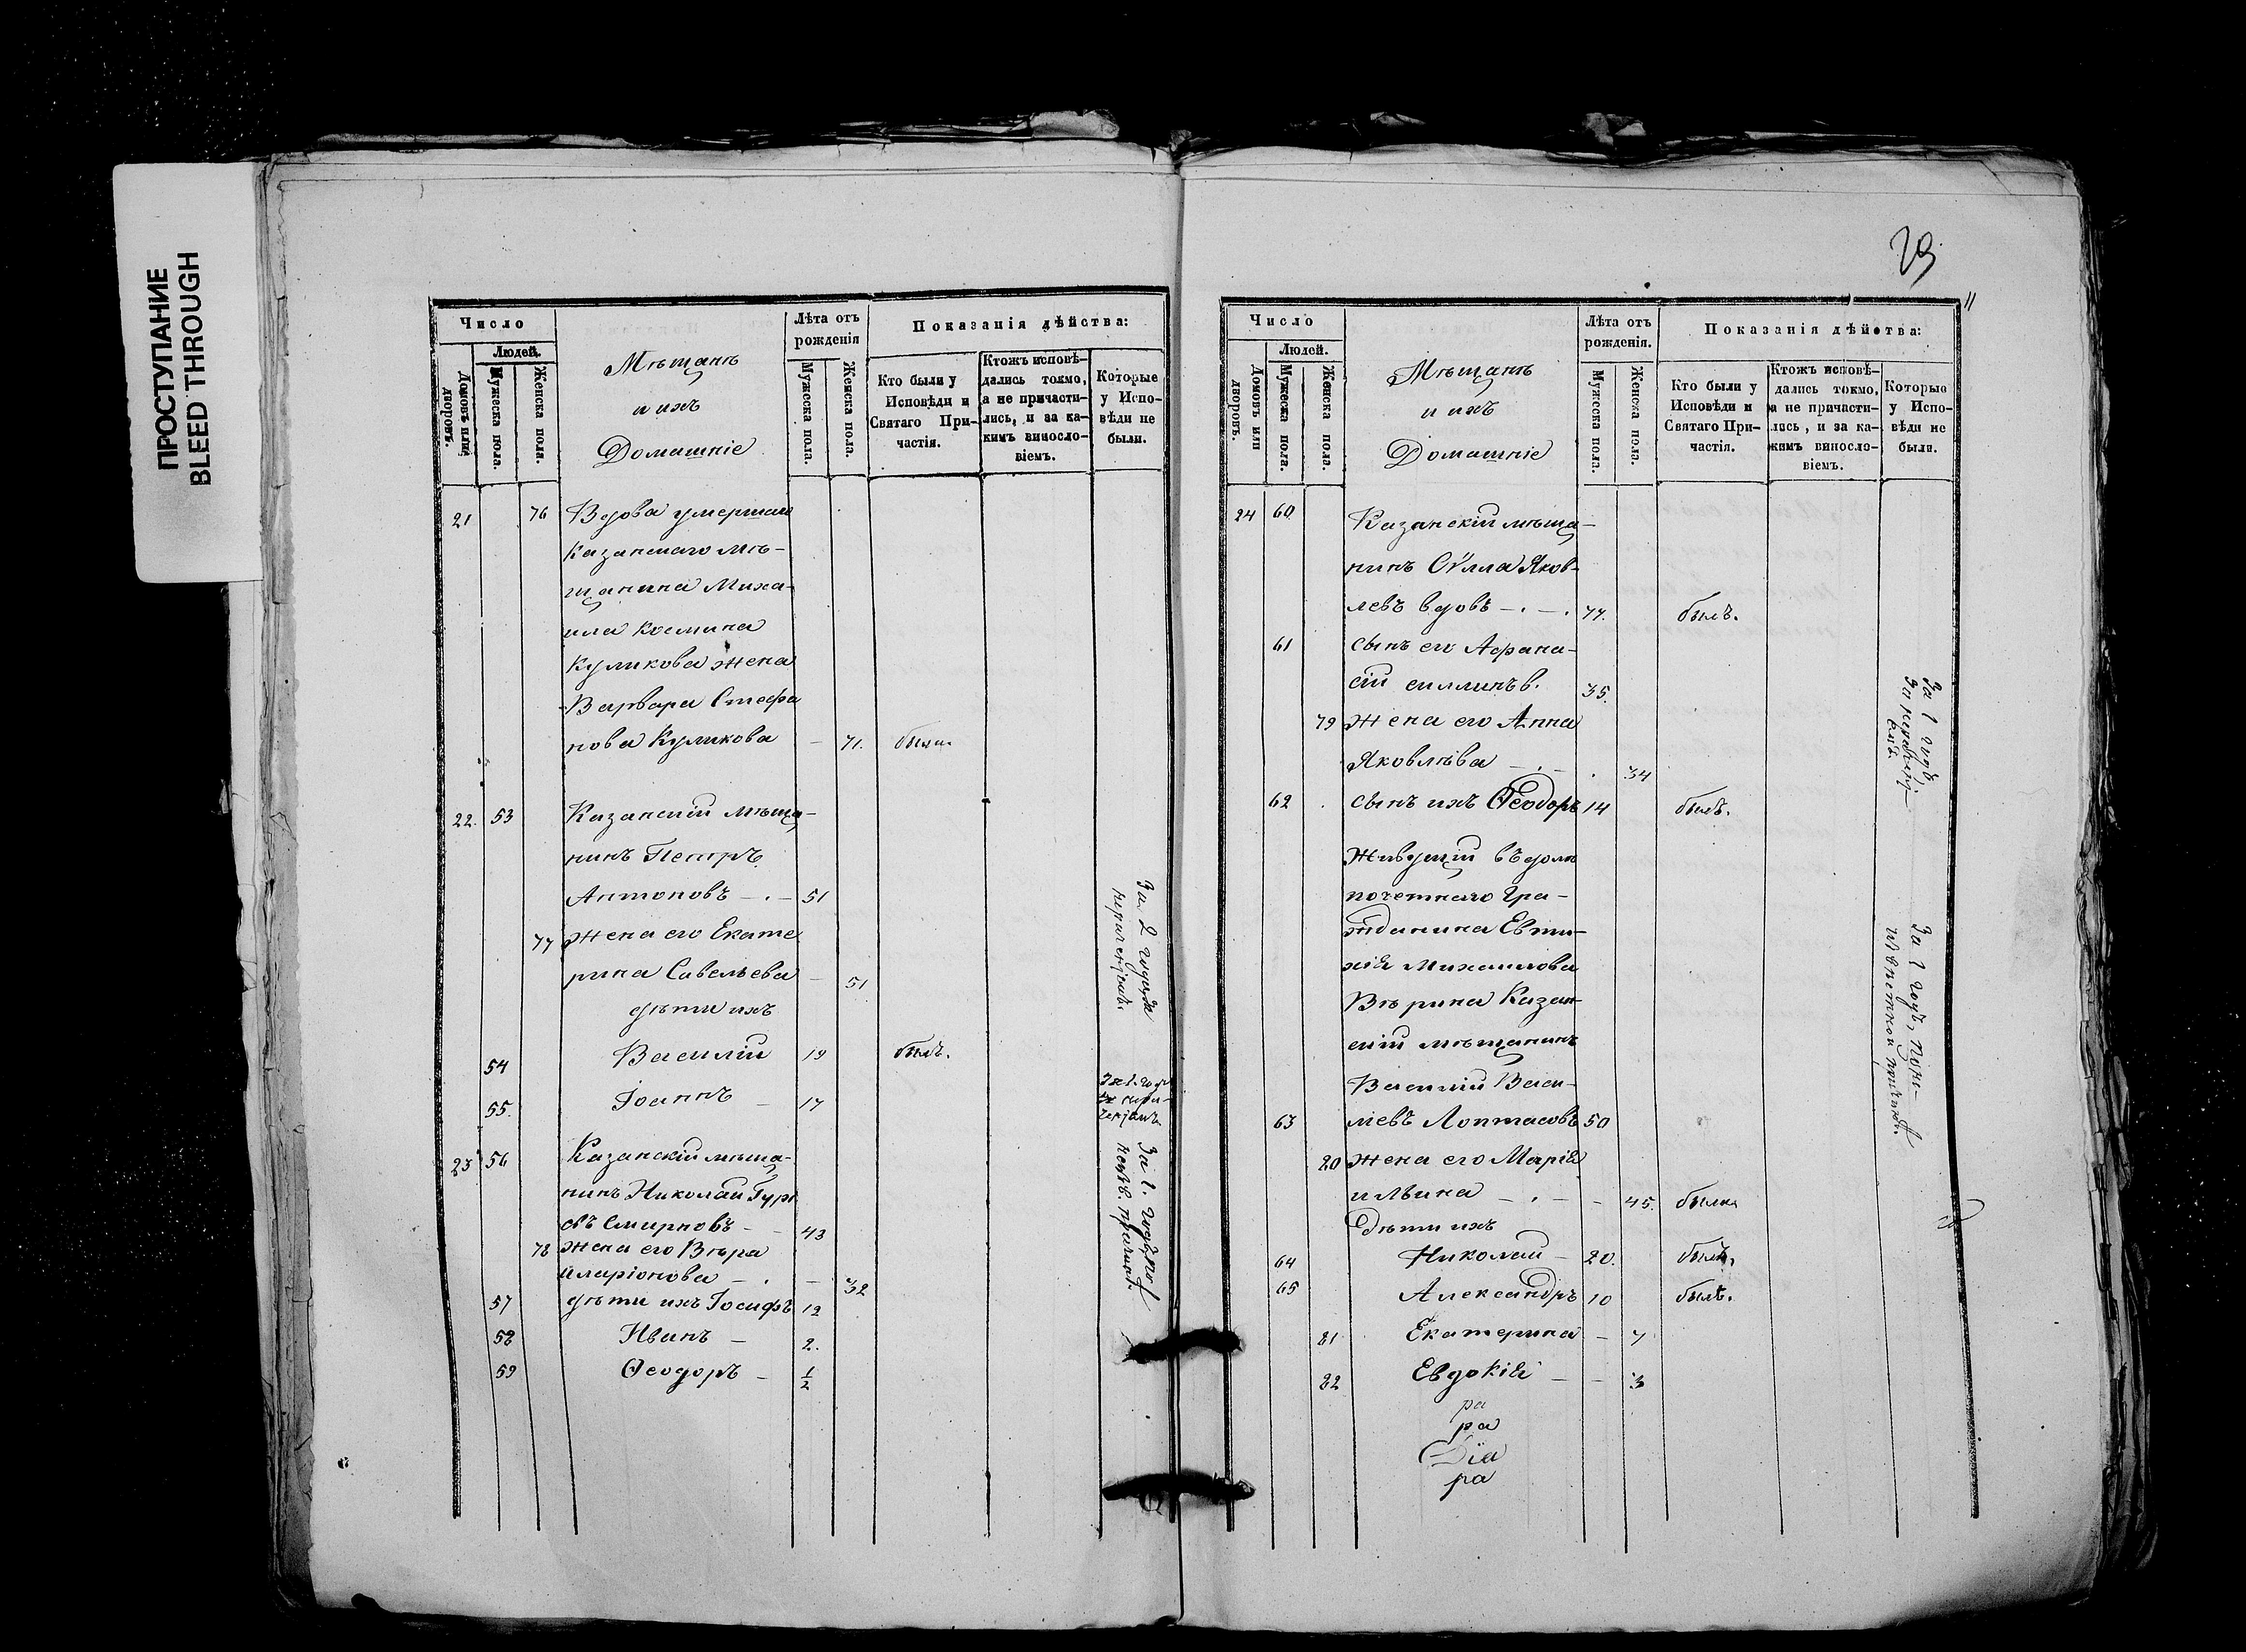 ПРОСТУПАНИЕ
BLEED THROUGH
Число
Людей.
Домовъ или дворовъ.
Мужеска пола.
Женска пола.
Мѣщанѣ
и ихъ
Домашніе
Лѣта отъ
рожденія
Мужеска пола.
Женска пола.
Показанія дѣйства:
Кто были у
Исповѣди и
Святаго При-
частія.
Ктожъ исповѣ-
дались токмо,
а не причасти-
лись, и за ка-
кимъ виносло-
віемъ.
Которые
у Испо-
вѣди не
были.
21 76 Вдова умершаго
Казанскаго мѣ-
щанина Миха-
ила Космина
Куликова жена
Варвара Стефа
нова Куликова - 71. была
22. 53 Казанскій мѣща-
нинъ Петръ
Антоновъ - . - 51
77 Жена его Екате
рина Савельева - 51
дѣти ихъ
54 Василій 19 былъ.
55. Іоаннъ - 17
За 2 года
За 1 годъ
23 56 Казанскій мѣща-
нинъ Николай Гурь
евъ Смирновъ - 43
78 жена его Вѣра
Иларіонова - . - 32
57 дѣти ихъ Іосифъ 12
58 Иванъ - 2.
59 Ѳеодоръ - 1/2
За 1. годъ
29
11
Число
Людей.
Домовъ или дворовъ.
Мужеска пола.
Женска пола.
Мѣщанѣ
и ихъ
Домашніе
Лѣта отъ
рожденія.
Мужеска пола.
Женска пола.
Показанія дѣйства:
Кто были у
Исповѣди и
Святаго При-
частія.
Ктожъ исповѣ-
дались токмо,
а не причасти-
лись, и за ка-
кимъ виносло-
віемъ.
Которые
у Испо-
вѣди не
были.
24 60 Казанскій мѣща-
нинъ Сѵлла Яков-
левъ вдовъ - . - . 77. былъ.
61 сынъ его Афана-
сій силлинъ в. 35.
79 жена его Анна
Яковлѣва - . - . 34
62 сынъ ихъ Ѳеодоръ 14 былъ.
За 1 годъ
Живущій въ домѣ
почетнаго Гра-
жданина Евти-
хія Михаилова
Вѣрина Казан-
скій мѣщанинъ
Василій Васи-
63 ліевъ Лоптасовъ 50
За 1 годъ, по не-
80 жена его Марія
ильина - . - - 45. была
Дѣти ихъ
64 Николай - 20. былъ.
65 Александръ 10 былъ.
81 Екатерина - 7
82 Евдокія - - 3
ра
ра
Діа
ра